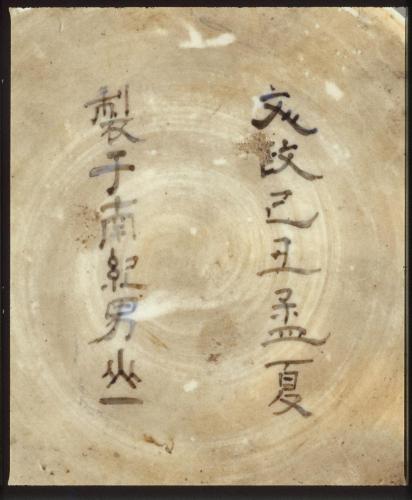 文政己丑孟夏
製于南紀男山